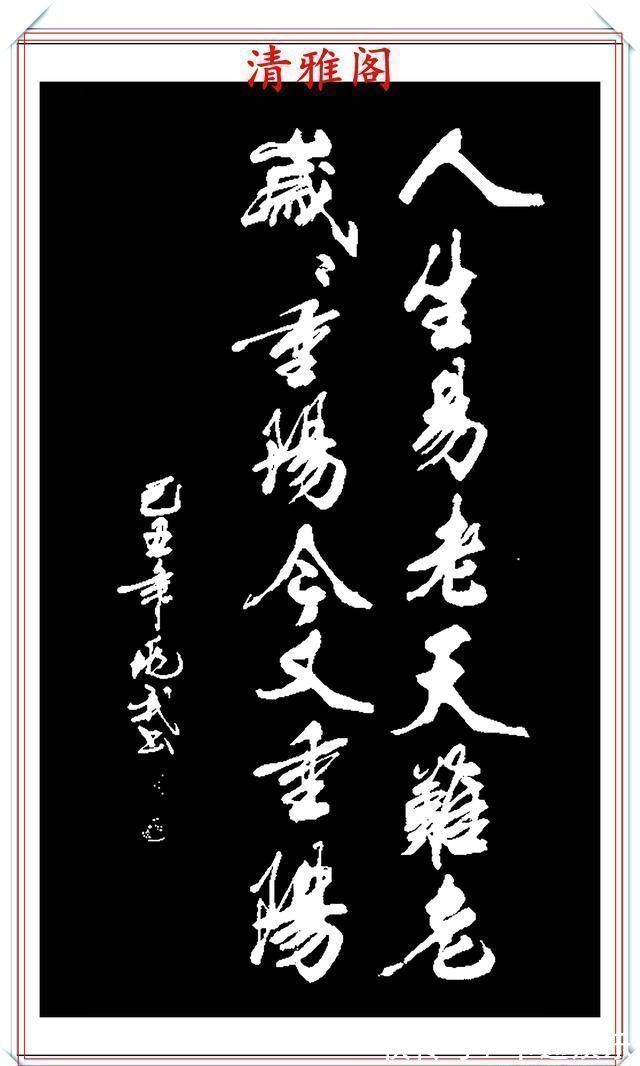 清雅阁
人生易老天難老
歲〻重陽今又重陽
己丑年
武书